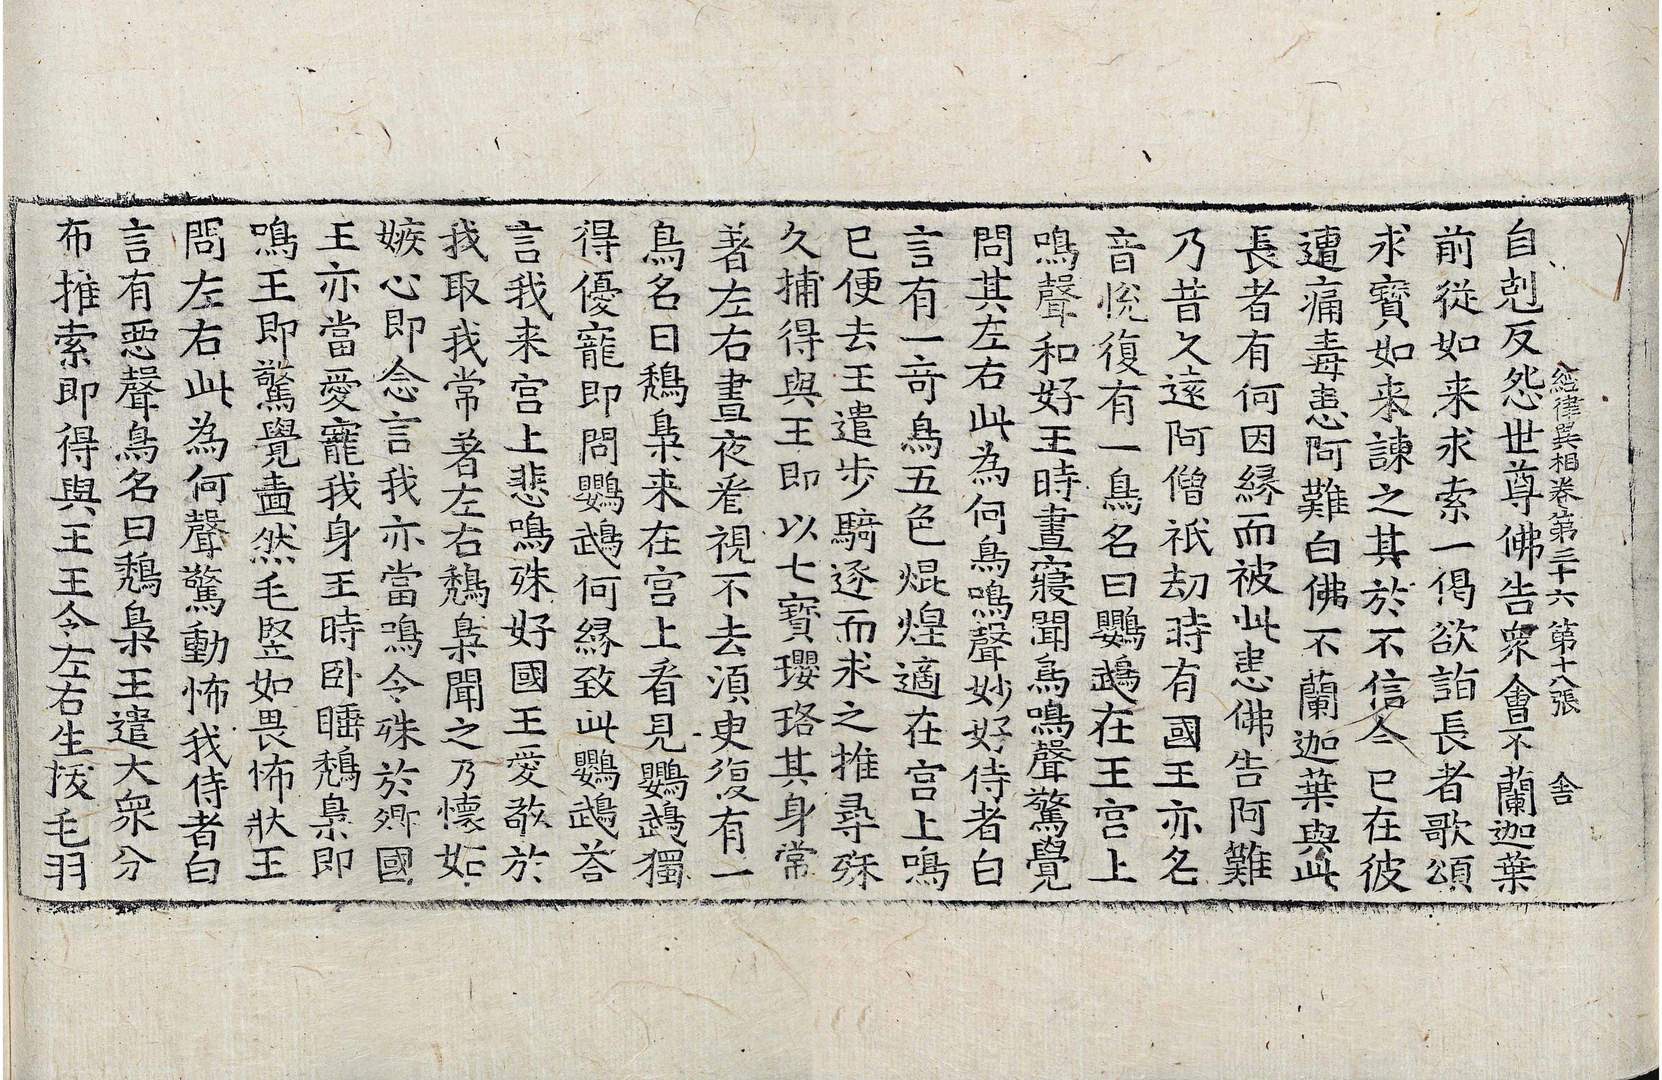 經律異相卷第三十六 第十八張 舎
自剋反怨世尊佛告衆會不蘭迦葉
前從如来求索一偈欲詣長者歌頌
求寳如来諌之其於不信今已在彼
遭痛毒恚阿難白佛不蘭迦葉與此
長者有何因縁而被此恚佛告阿難
乃昔久遠阿僧祇劫時有國王亦名
音悅復有一鳥名曰鸚鵡在王宫上
鳴聲和好王時晝寢聞鳥鳴聲驚覺
問其左右此為何鳥鳴聲妙好侍者白
言有一竒鳥五色焜煌適在宫上鳴
已便去王遣歩騎逐而求之推尋殊
久捕得與王即以七寳瓔珞其身常
著左右晝夜看視不去須臾復有一
鳥名曰鵚梟来在宫上看見鸚鵡獨
得優寵即問鸚鵡何縁致此鸚鵡荅
言我来宫上悲鳴殊好國王愛敬於
我取我常著左右鵚梟聞之乃懷妬
嫉心即念言我亦當鳴令殊於卿國
王亦當愛寵我身王時卧睡鵚梟即
鳴王即驚覺𧹞然毛竪如畏怖狀王
問左右此為何聲驚動怖我侍者白
言有惡聲鳥名曰鵚梟王遣大衆分
布推索即得與王王令左右生拔毛羽